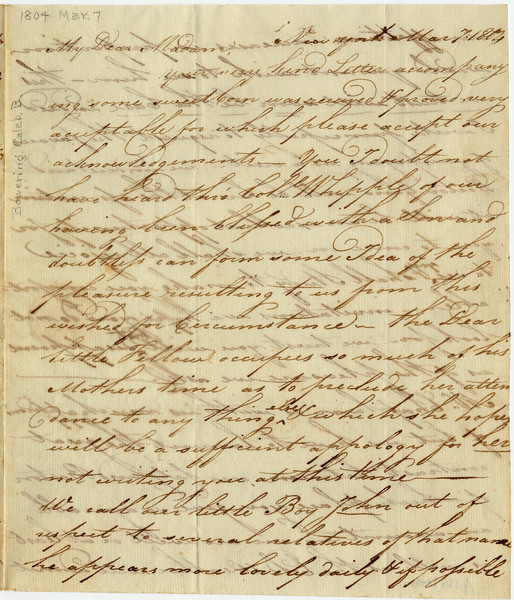 1804 Mar. 7
Bowering, Caleb B.
My Dear Madam New York Mar 7. 1804
your very kind Letter accompany
ing some sweet Corn was received & proved very
acceptable for which please accept our
acknowledgements — You I doubt not
have heard thro' Coll. Whipple of our
having been blessed with a Son and
doubtless can form some Idea of the
pleasure resulting to us from this
wished for Circumstance — the Dear
little Fellow occupies so much of his
Mothers time as to preclude her atten
dance to any thing else which she hopes
will be a sufficient appology for her
not writing you at this time —
We call our little Boy John out of
respect to several relatives of that name
he appears more lovely daily & if possible